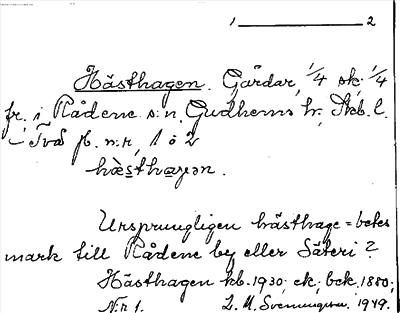 1 ——— 2
Hästhagen. Gårdar, 1/4 sk. 1/4
fr. i Rådene s:n, Gudhems hr, Skb. l.
Två fl. n:r, 1 o 2
hæsthaγən.
Ursprungligen hästhage = betes
mark till Rådene by eller Säteri?
Hästhagen kb. 1930; ek. bek. 1880;
N:r 1. L. M. Svenungsson. 1949.